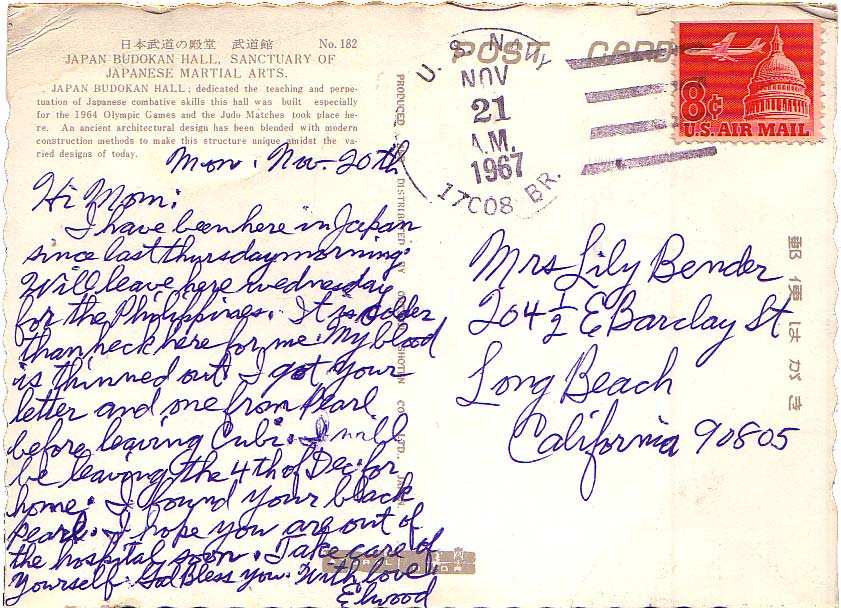 日本武道の殿堂 武道館 No. 182
JAPAN BUDOKAN HALL, SANCTUARY OF
JAPANESE MARTIAL ARTS.
JAPAN BUDOKAN HALL; dedicated the teaching and perpe-
tuation of Japanese combative skills this hall was built especially
for the 1964 Olympic Games and the Judo Matches took place he-
re. An ancient architectural design has been blended with modern
construction methods to make this structure unique amidst the va-
ried designs of today.
Mon. Nov. 20th
Hi Mom:
I have been here in Japan
since last thursday morning.
Will leave here wednesday
for the Philippines. It is colder
than heck here for me. My blood
is thinned out. I got your
letter and one from Pearl
before leaving Cubi. I will
be leaving the 4th of Dec. for
home. I found your black
pearl. I hope you are out of
the hospital soon. Take care of
yourself. God Bless you. With love
Elwood
PRODUCED AND DISTRIBUTED BY SHOTEN CO., LTD. JAPAN
POST CARD
U. S. NAVY
NOV
21
A.M.
1967
17C08 BR.
8¢
U.S. AIR MAIL
Mrs Lily Bender
204 1/2 E Barclay St
Long Beach
California 90805
郵便はがき